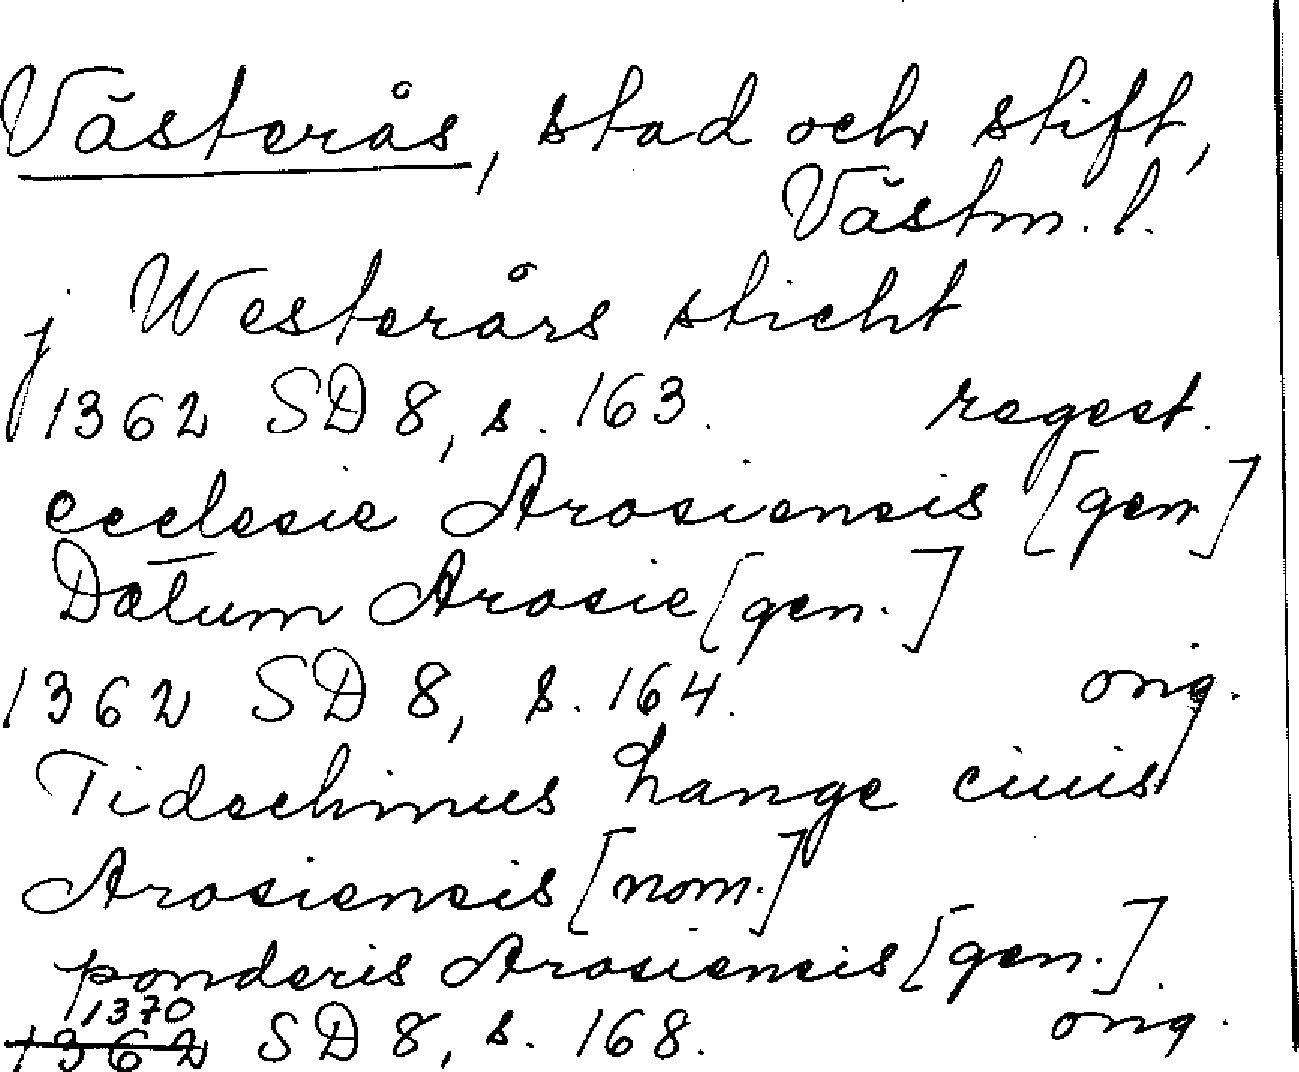 Västerås, stad och stift,
Västm. l.
j Westerårs sticht
1362 SD 8, s. 163. regest.
ecclesie Arosiensis [gen]
Datum Arosie [gen.]
1362 SD 8, s. 164. orig.
Tidechinus hange ciuis
Arosiensis [nom.]
ponderis Arosiensis [gen.].
1370
1362 SD 8, s. 168. orig.